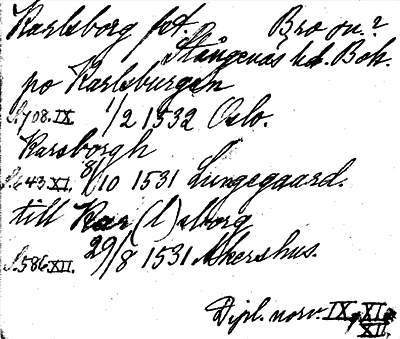 Karlsborg fst. Bro sn.?
Stångenäs hd. Boh.
po Karlsburgen
S.708.IX 1/2 1532 Oslo.
Karsborgh
S.643.XI. 8/10 1531 Lungegaard.
till Kar(l)sborg
S.586.XII. 29/8 1531 Akershus.
Dipl. norv. IX, XI,
XII.